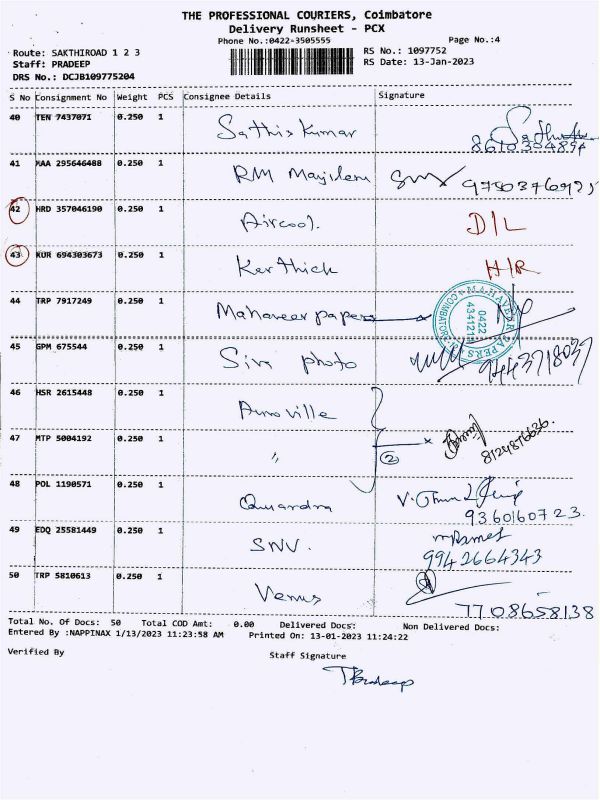 THE PROFESSIONAL COURIERS, Coimbatore
Delivery Runsheet - PCX
Phone No.:0422-3505555
Page No.:4
Route: SAKTHIROAD 1 2 3
RS No.: 1097752
Staff: PRADEEP
RS Date: 13-Jan-2023
DRS No.: DCJB109775204
S No Consignment No Weight PCS Consignee Details Signature
40 TEN 7437071 0.250 1 Sathis Kumar
8610304894
41 MAA 295646488 0.250 1 RM
42 HRD 357046190 0.250 1 Aircool. D/L
43 KUR 694303673 0.250 1 Karthick H/R
44 TRP 7917249 0.250 1 Mahaveer papers
MAHAVEER PAPERS
COIMBATORE
0422
45 GPM 675544 0.250 1 Siri photo
9443718037
46 HSR 2615448 0.250 1
47 MTP 5004192 0.250 1 〃 2
48 POL 1190571 0.250 1
9360160723
49 EDQ 25581449 0.250 1 SNV.
9942664343
50 TRP 5810613 0.250 1 Venus
7708658138
Total No. Of Docs: 50 Total COD Amt: 0.00 Delivered Docs: Non Delivered Docs:
Entered By :NAPPINAX 1/13/2023 11:23:58 AM Printed On: 13-01-2023 11:24:22
Verified By Staff Signature
T Pradeep